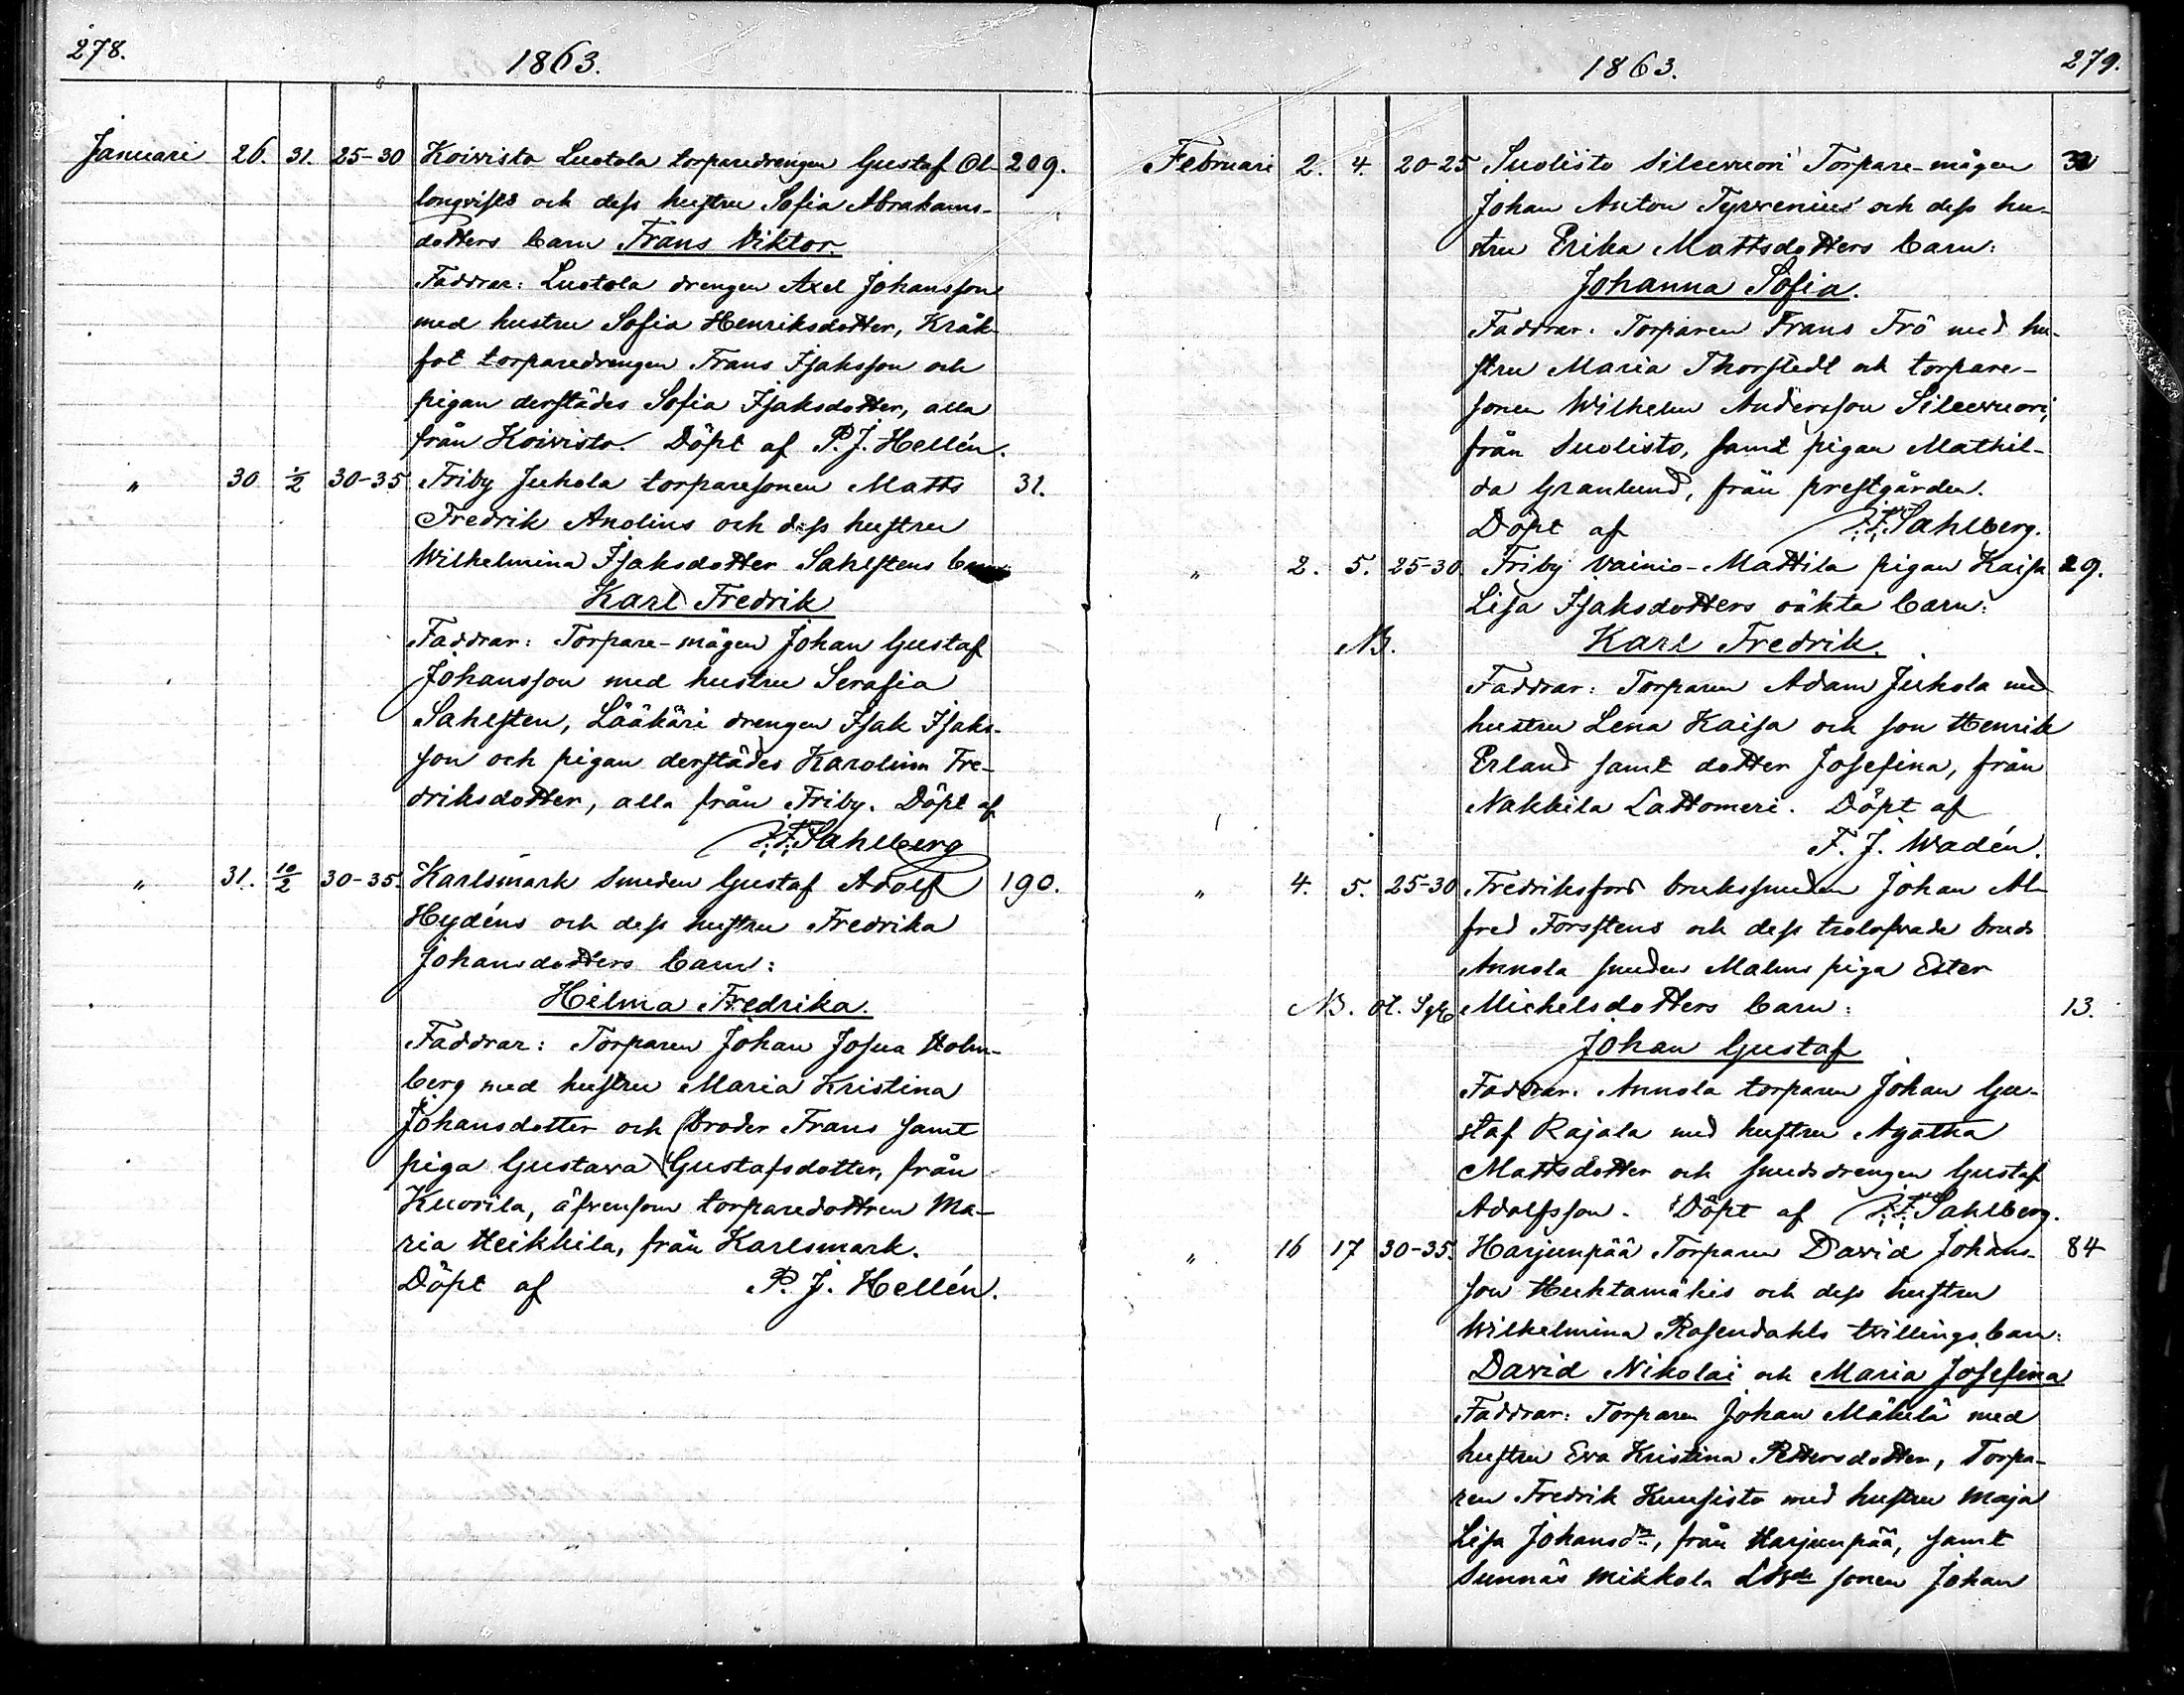 278.
1863.
Januari 26. 31. 25-30 Koivisto Luotola torparedrengen Gustaf Ol- 209.
lonqvists och dess hustru Sofia Abrahams-
dotters barn Frans Viktor.
Faddrar: Luotola drengen Axel Johansson
med hustru Sofia Henriksdotter, Kråk-
fot torparedrengen Frans Isaksson och
pigan derstädes Sofia Isaksdotter, alla
från Koivisto. Döpt af P. J. Hellén.
" 30 1/2 30-35 Friby Juhola torparesonen Matts 31.
Fredrik Anolins och dess hustru
Wilhelmina Isaksdotter Sahlstens
Karl Fredrik
Faddrar: Torpare-mågen Johan Gustaf
Johansson med hustru Serafia
Sahlsten, Lääkäri drengen Isak Isaks-
son och pigan derstädes Karolina Fre-
driksdotter, alla från Friby. Döpt af
F. F. Sahlberg
" 31. 10/2 30-35. Karlsmark Smeden Gustaf Adolf 190.
Hydéns och dess hustru Fredrika
Johansdotters barn:
Hilma Fredrika.
Faddrar: Torparen Johan Josua Holm-
berg med hustru Maria Kristina
Johansdotter och broder Frans samt
piga Gustava Gustafsdotter, från
Kuorila, äfvensom torparedottren Ma-
ria Heikkila, från Karlsmark.
Döpt af P. J. Hellén.
1863.
279.
Februari 2. 4. 20-25 Suolisto Sileevuori Torpare-mågen
Johan Anton Tyrvenius och dess hu-
stru Erika Mattsdotters barn:
Johanna Sofia.
Faddrar: Torparen Frans Frö med hu-
stru Maria Thorstedt och torpare-
sonen Wilhelm Andersson Sileevuori,
från Suolisto, samt pigan Mathil-
da Granlund, från prestgården.
Döpt af F. F. Sahlberg.
" 2. 5. 25-30 Friby Vainio-Mattila pigan Kaisa 29.
Lisa Isaksdotters oäkta barn:
NB. Karl Fredrik.
Faddrar: Torparen Adam Juhola med
hustru Lena Kaisa och son Henrik
Erland samt dotter Josefina, från
Nakkila Lattomeri. Döpt af
F. J. Wadén.
" 4. 5. 25-30 Fredriksfors brukssmeden Johan Al-
fred Forsstens och dess trolofvade brud
Annola smeden Malms piga Ester
NB. Michelsdotters barn: 13.
Johan Gustaf
Faddrar: Annola torparen Johan Gu-
staf Rajala med hustru Agatha
Mattsdotter och smedsdrengen Gustaf
Adolfsson. Döpt af F. F. Sahlberg.
" 16 17 30-35. Harjunpää Torparen David Johans- 84
son Huhtamäkis och dess hustru
Wilhelmina Rosendahls tvillingsbarn:
David Nikolai och Maria Josefina
Faddrar: Torparen Johan Mäkelä med
hustru Eva Kristina Pettersdotter, Torpa-
ren Fredrik Kuusisto med hustru Maja
Lisa Johansdr, från Harjunpää, samt
Sunnäs Mikkola sonen Johan